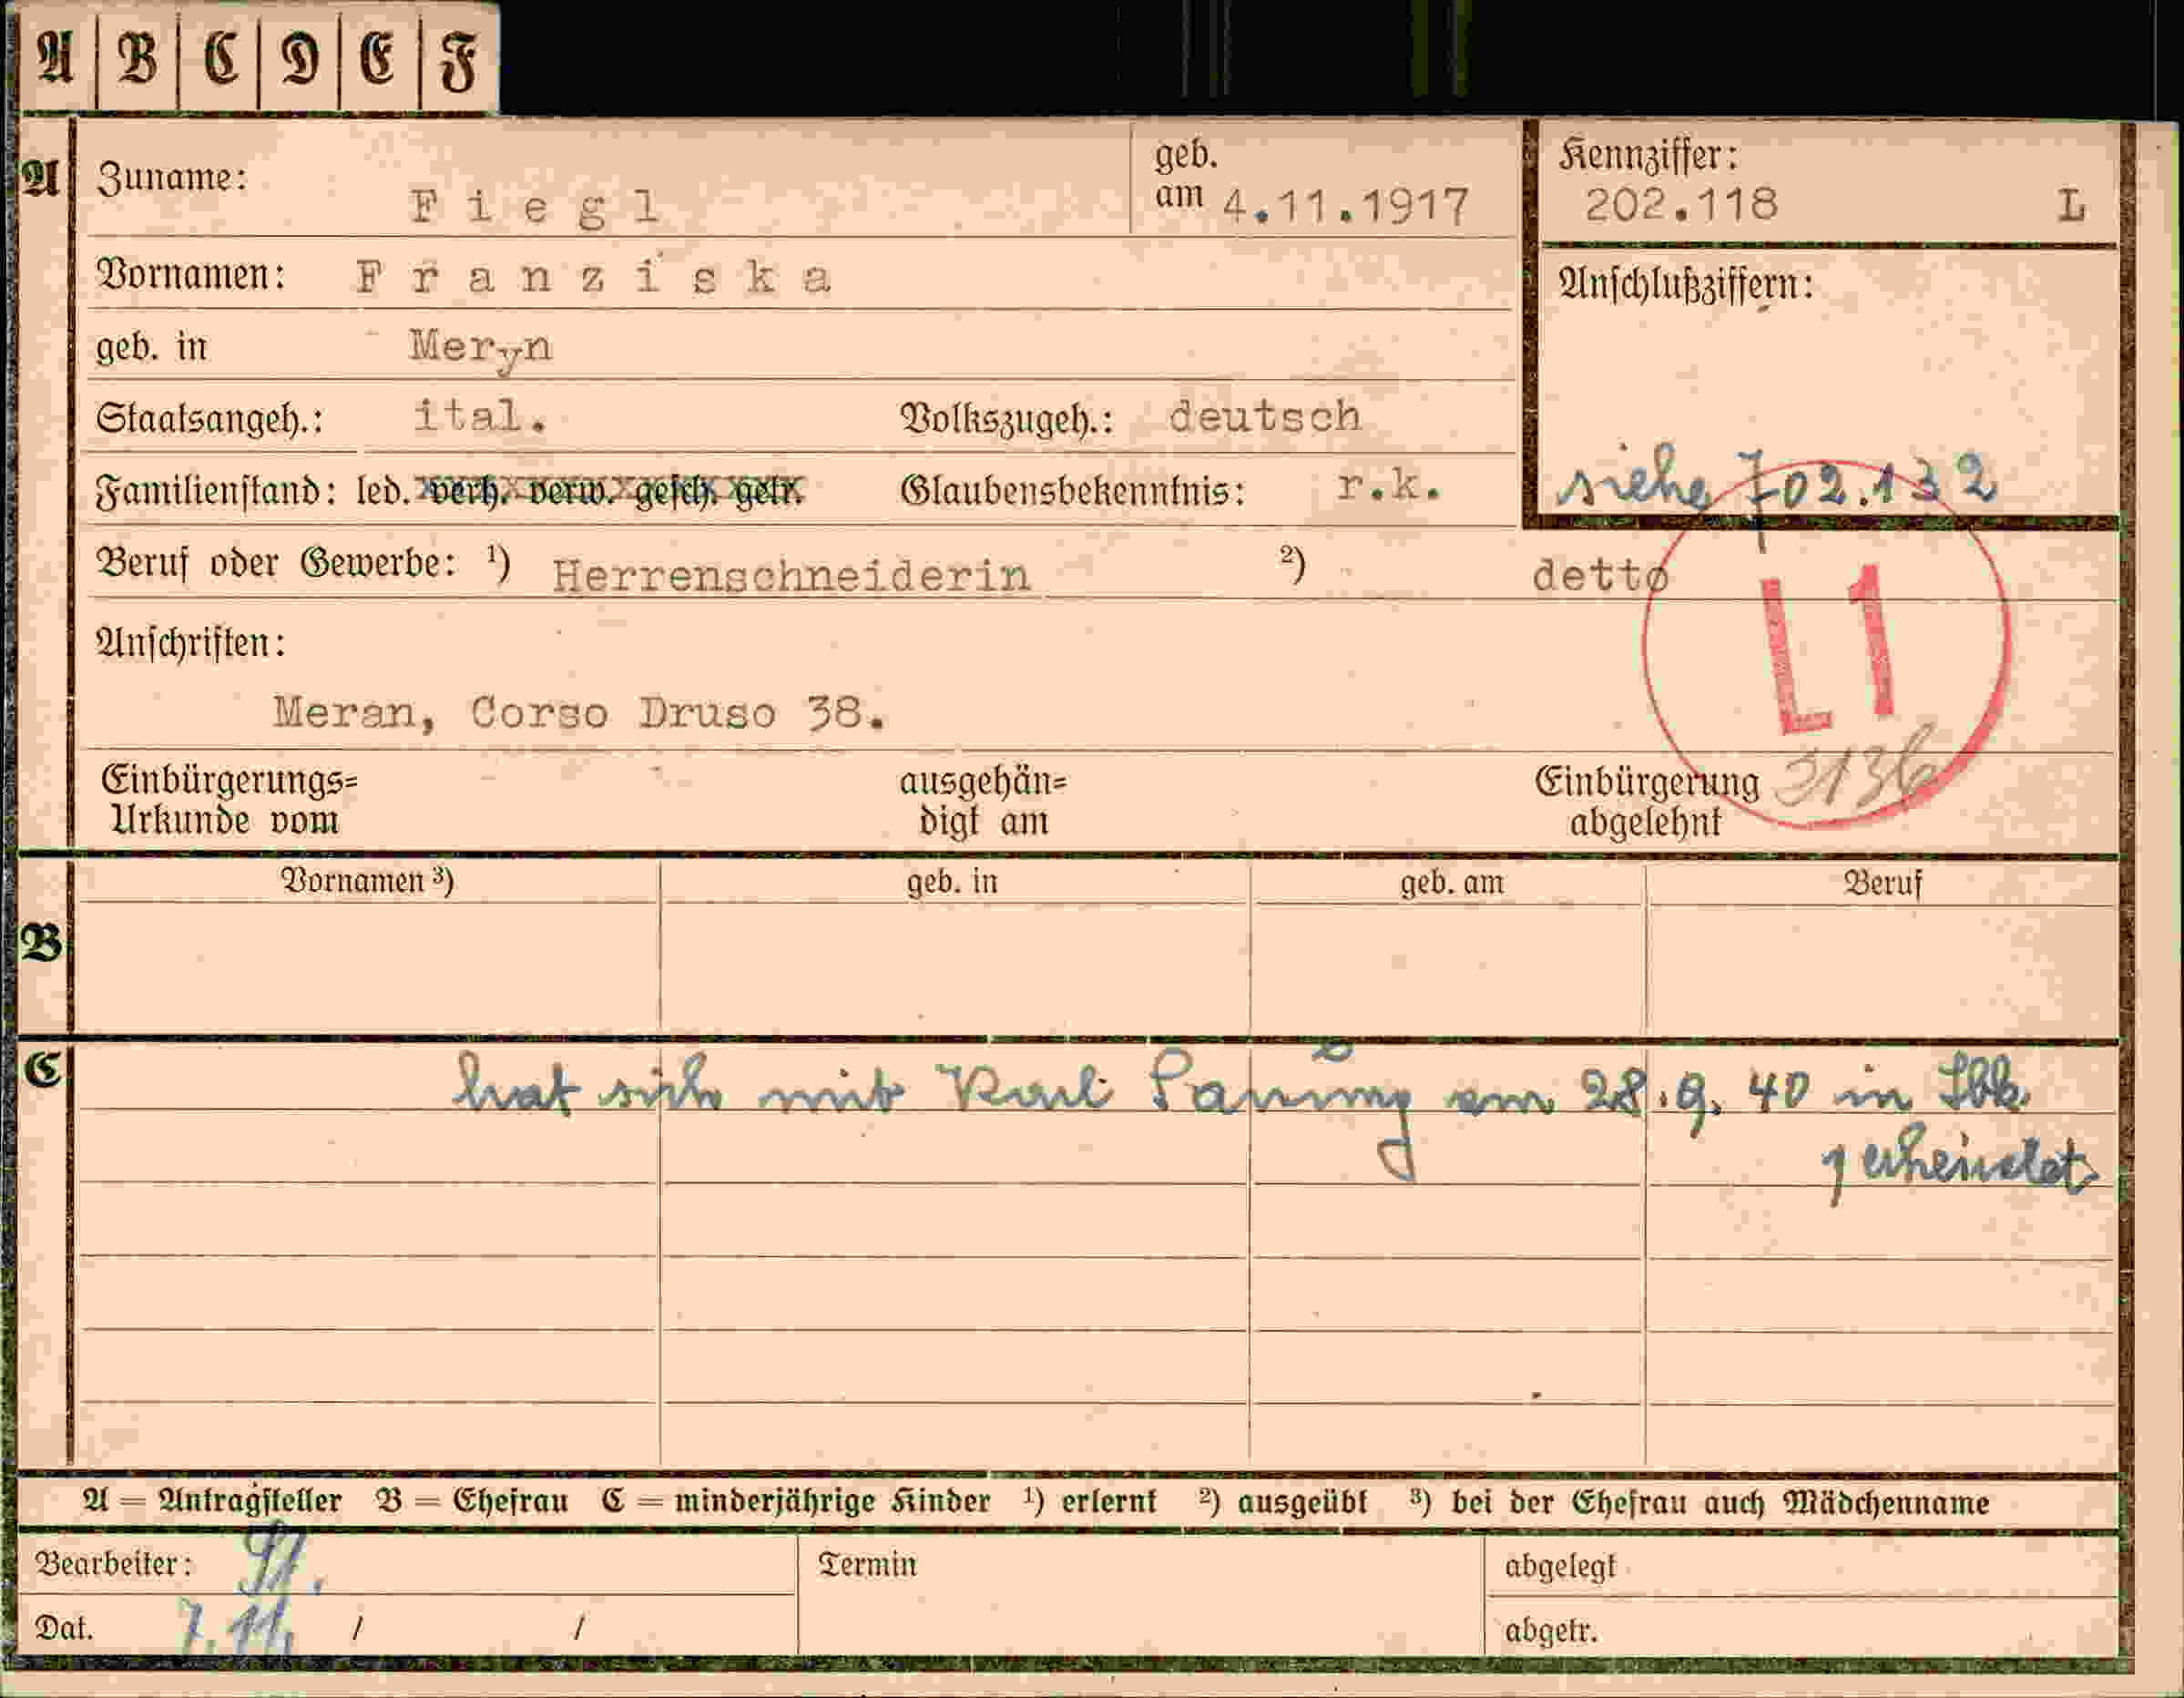 A B C D E F
A Zuname: Fiegl geb. am 4.11.1917 Kennziffer: 202.118 L
Vornamen: Franziska Anschlußziffern:
geb. in Meryn
Staatsangeh.: ital. Volkszugeh.: deutsch
Familienstand: led. verh. verw. gesch. getr. Glaubensbekenntnis: r.k. siehe 702.132
Beruf oder Gewerbe: ¹) Herrenschneiderin ²) detto
L1
Anschriften:
Meran, Corso Druso 38.
3136
Einbürgerungs= ausgehän= Einbürgerung
Urkunde vom digt am abgelehnt
B Vornamen ³) geb. in geb. am Beruf
C hat sich mit Karl am 28.9.40 in Ibk.
verheiratet
A = Antragsteller B = Ehefrau C = minderjährige Kinder ¹) erlernt ²) ausgeübt ³) bei der Ehefrau auch Mädchenname
Bearbeiter: Termin abgelegt
Dat. 7.11. / / abgetr.